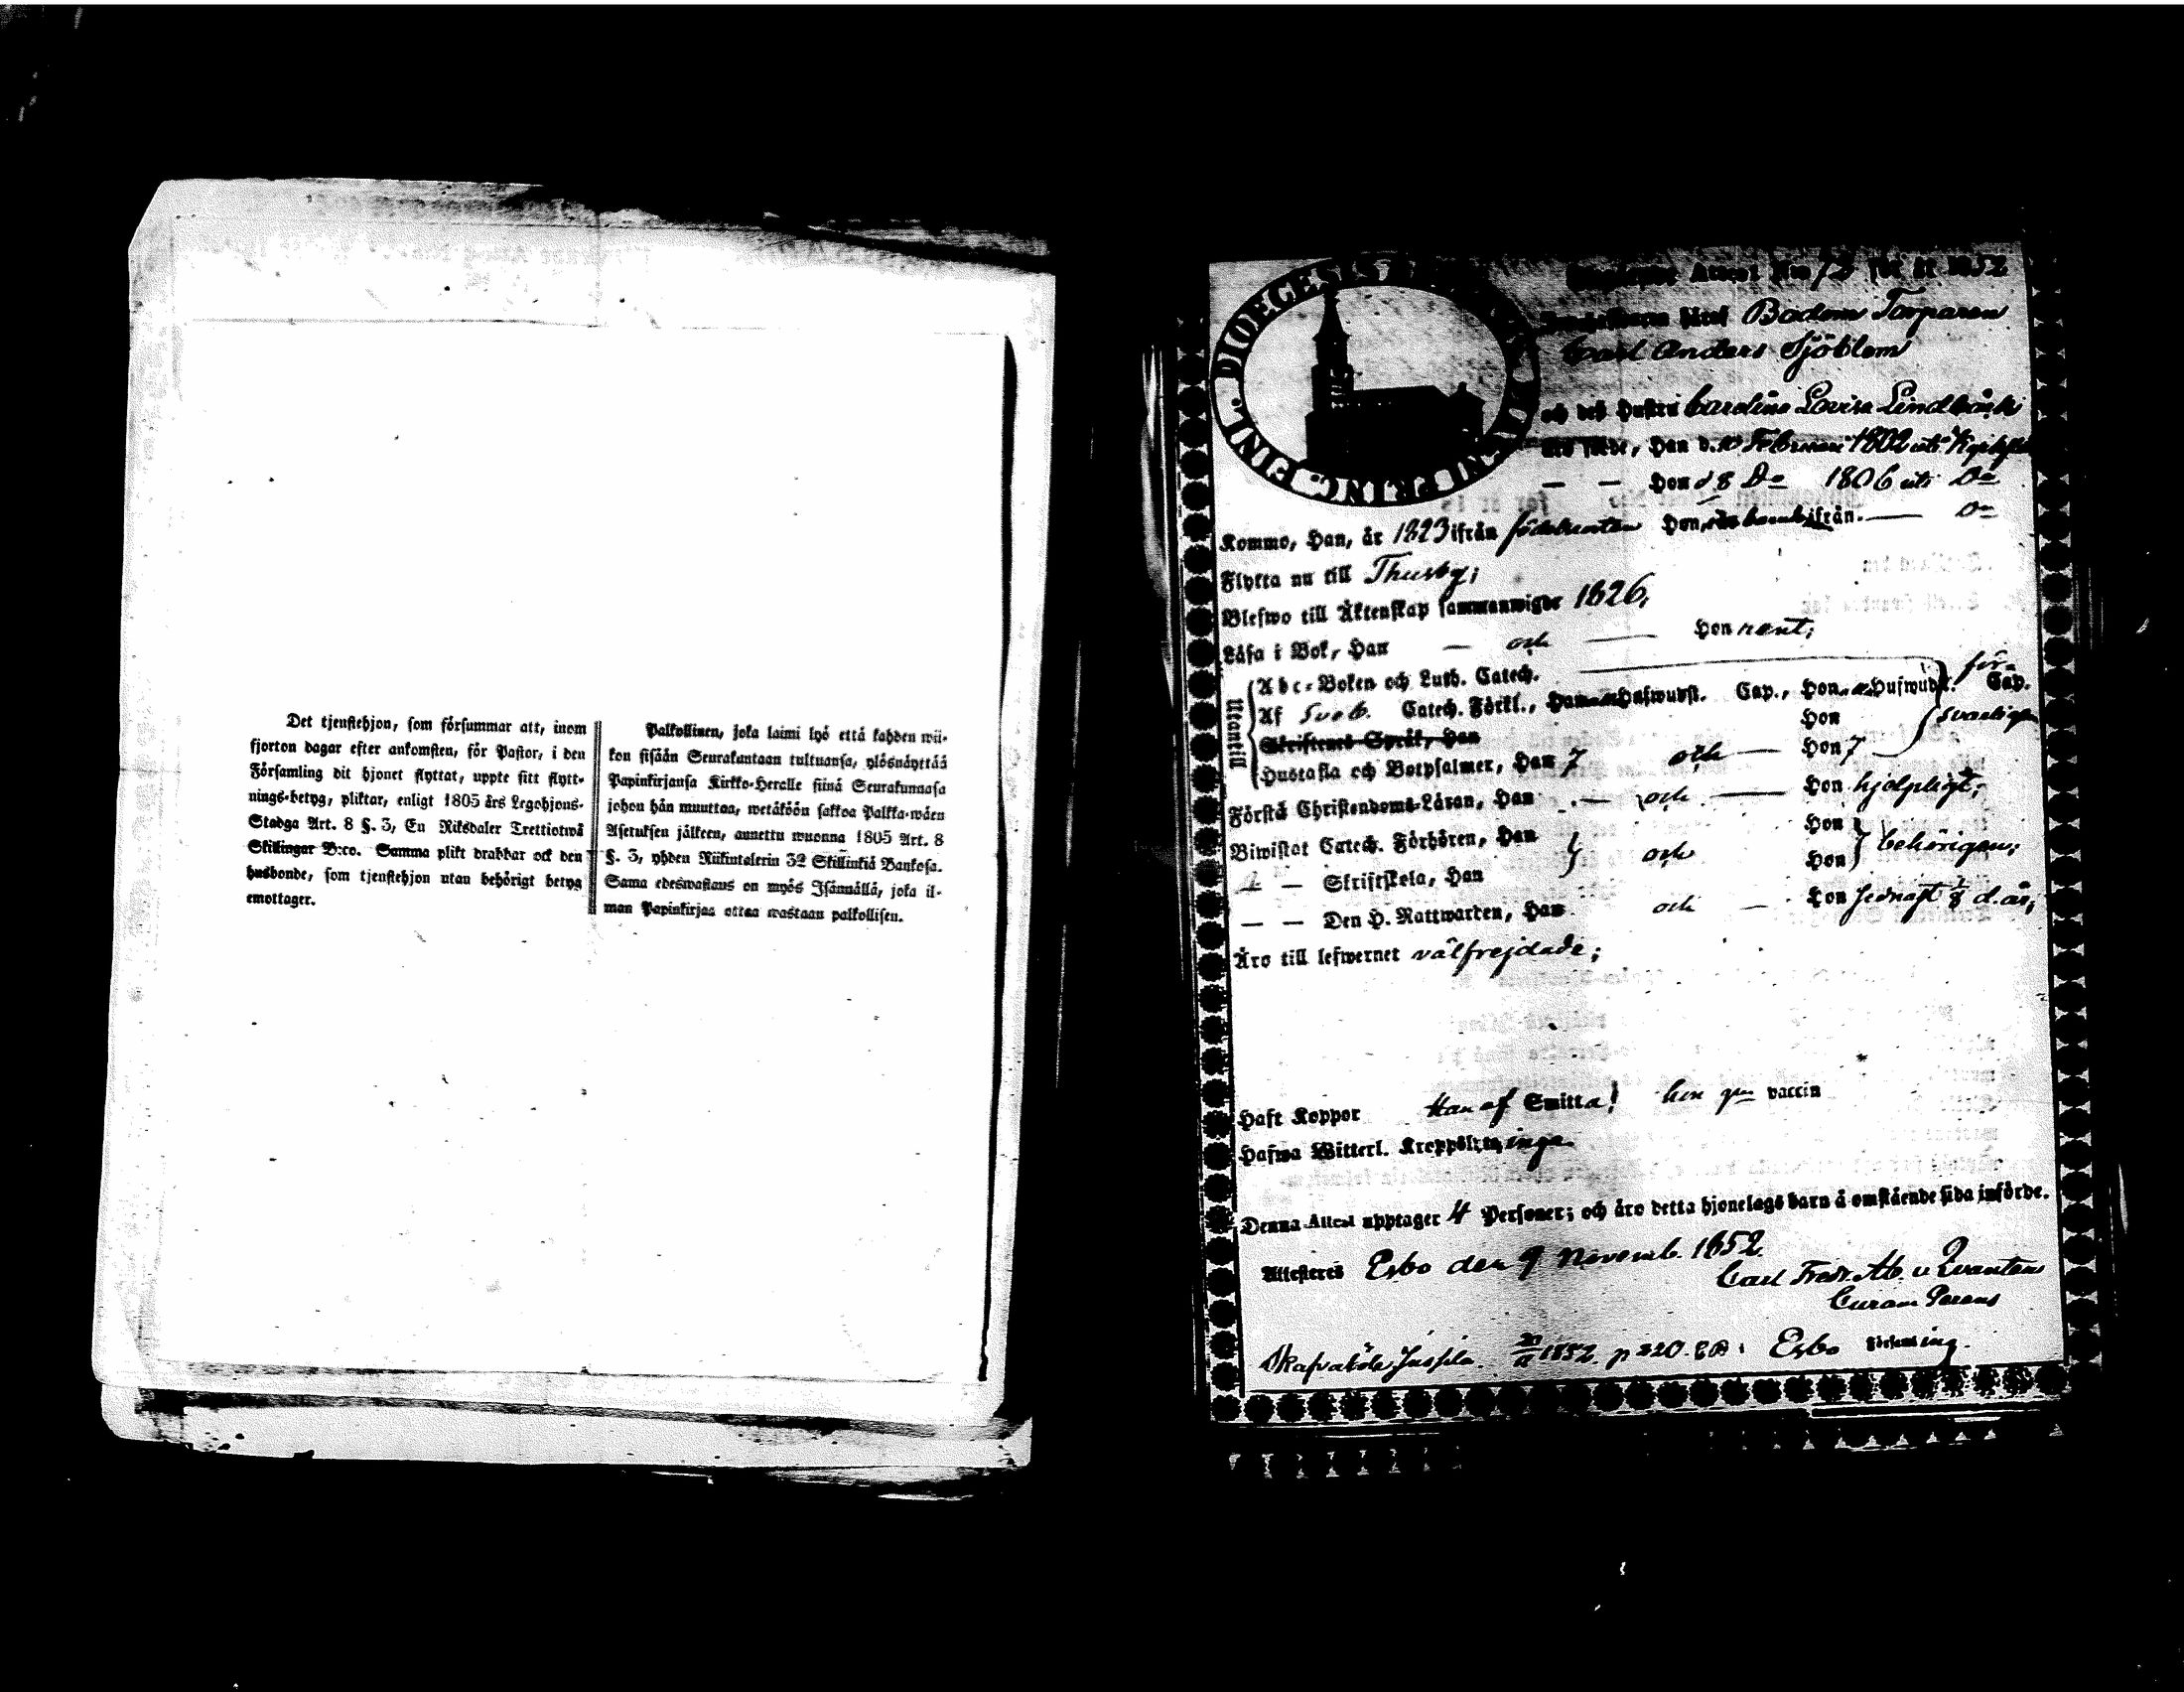 Det tjenstehjon, som försummar att, inom
fjorton dagar efter ankomsten, för Pastor, i den
Församling dit hjonet flyttat, uppte sitt flytt-
nings-betyg, pliktar, enligt 1805 års Legohjons-
Stadga Art. 8 §. 3, En Riksdaler Trettiotwå
Skillingar B:co. Samma plikt drabbar ock den
husbonde, som tjenstehjon utan behörigt betyg
emottager.
Palkollinen, joka laimi lyö että kahden wii-
kon sisään Seurakuntaan tultuansa, ylösnäyttää
Papinkirjansa Kirkko-Herralle siinä Seurakunnasa
johon hän muuttaa, wetäköön sakkoa Palkka-wäen
Asetuksen jälkeen, annettu wuonna 1805 Art. 8
§. 3, yhden Riikintalerin 32 Skillinkiä Bankosa.
Sama edeswastaus on myös Isännällä, joka il-
man Papinkirjaa ottaa wastaan palkollisen.
DIOECES
Attest N:o 72 för år 1852
Bodom Torparen
Carl Anders Sjöblom
och des Hustru Carolina Lovisa
äro födde, Han d. Februari 1802 uti
— — Hon d 8 Do 1806 uti Do
Kommo, Han, år 1823 ifrån födelseorten Hon, ifrån. — Do
Flytta nu till Thusby;
Blefwo till Äktenskap sammanwigde 1826,
Läsa i Bok, Han — och — Hon rent;
Utantill
Abc-Boken och Luth. Catech.
Af Sveb. Catech. Förkl., Han Hufwudst. Cap., Hon Hufwudst. Cap. för-
Skriftenes Språk, Han Hon svarligen
Hustafla och Botpsalmer, Han 7 och — Hon 7
Förstå Christendoms-Läran, Han — och — Hon hjelpligt;
Biwistat Catech. Förhören, Han och Hon behörigen;
— — Skriftskola, Han Hon
— — Den H. Nattwarden, Han och — Hon sednast d. år;
Äro till lefwernet välfrejdade;
Haft Koppor Han af Smitta! hon gm vaccin
Hafwa Witterl. Kroppslyten inga
Denna Attest upptager 4 Personer; och äro detta hjonelags barn å omstående sida införde.
Attesteras Esbo den 9 Novemb. 1852.
Carl Fredr. Ab. v Qvanten
Curam Gerens
1852. p 220. Esbo Församling.